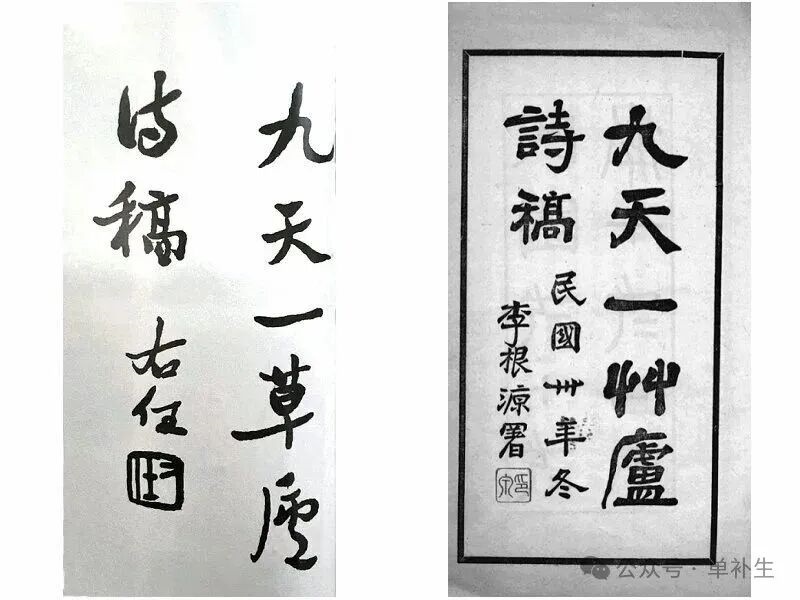 九天一草廬
诗稿
右任
九天一艸廬
詩稿
民國卅年冬
李根源署
公众号·单补生